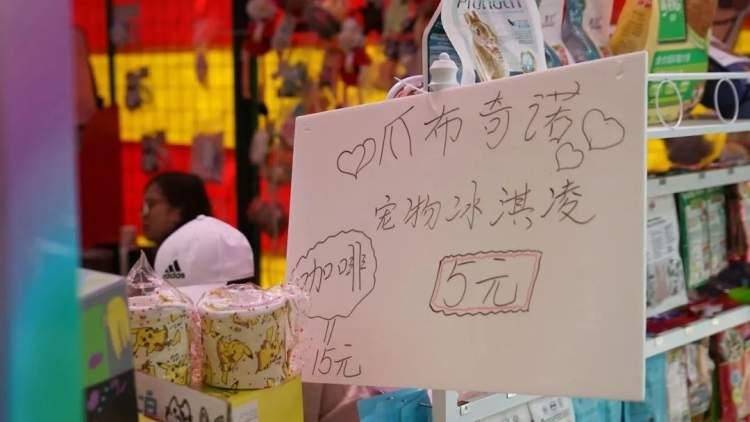 爪布奇诺
宠物冰淇凌
5元
咖啡
15元
adidas